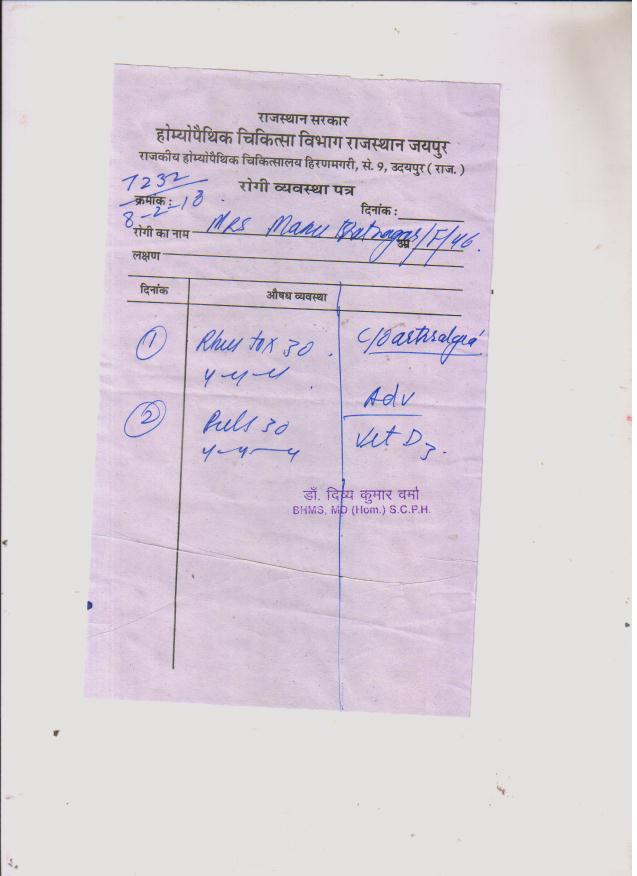 राजस्थान सरकार
होम्योपैथिक चिकित्सा विभाग राजस्थान जयपुर
राजकीय होम्योपैथिक चिकित्सालय हिरणमगरी, से. 9, उदयपुर ( राज. )
रोगी व्यवस्था पत्र
7232
क्रमांक :
दिनांक :
8-2-18
रोगी का नाम Mrs Manu Bhatnagar/F/46.
लक्षण
दिनांक औषध व्यवस्था
① Rhus tox 30. C/o arthralgia
4-4-4
Adv
② Puls 30 Vit D3.
4-4-4
डॉ. दिव्य कुमार वर्मा
BHMS, MD (Hom.) S.C.P.H.